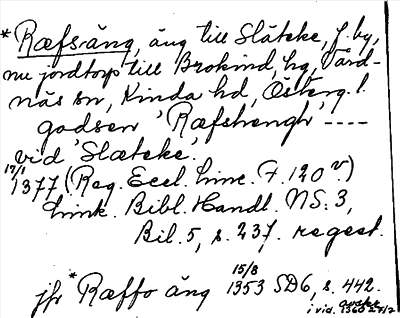 *Ræfsäng, äng till Slätcke, f. by,
nu jordtorp till Brokind, hg, Vård-
näs sn, Kinda hd, Österg. l.
godsen 'Ræfshengh' ----
vid 'Slætcke'.
17/1 1377 (Reg. Eccl. Linc. F. 120 v.)
Link. Bibl. Handl. NS: 3,
Bil. 5, s. 237, regest.
jfr *Ræffo äng 15/8 1353 SD6, s. 442.
i vid. 1360